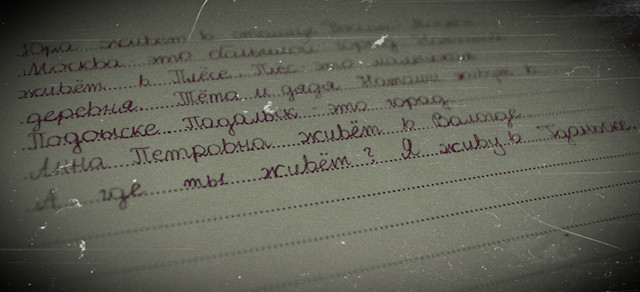 Юра живёт в
Москва это большой город
живёт в Плёсе Плёс это маленькая
деревня Тётя и дядя Наташи живут в
Подольске Подольск это город
Анна Петровна живёт в Вологде
А где ты живёт? Я живу в